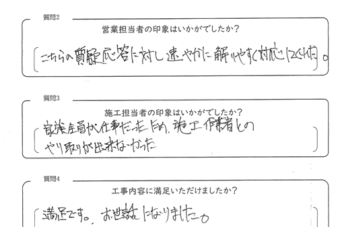 質問2
営業担当者の印象はいかがでしたか?
こちらの質疑応答に対し速やかに解りやすく対応してくれた。
質問3
施工担当者の印象はいかがでしたか?
家族全員が仕事だったため、施工作業者との
やり取りが出来なかった
質問4
工事内容に満足いただけましたか?
満足です。お世話になりました。